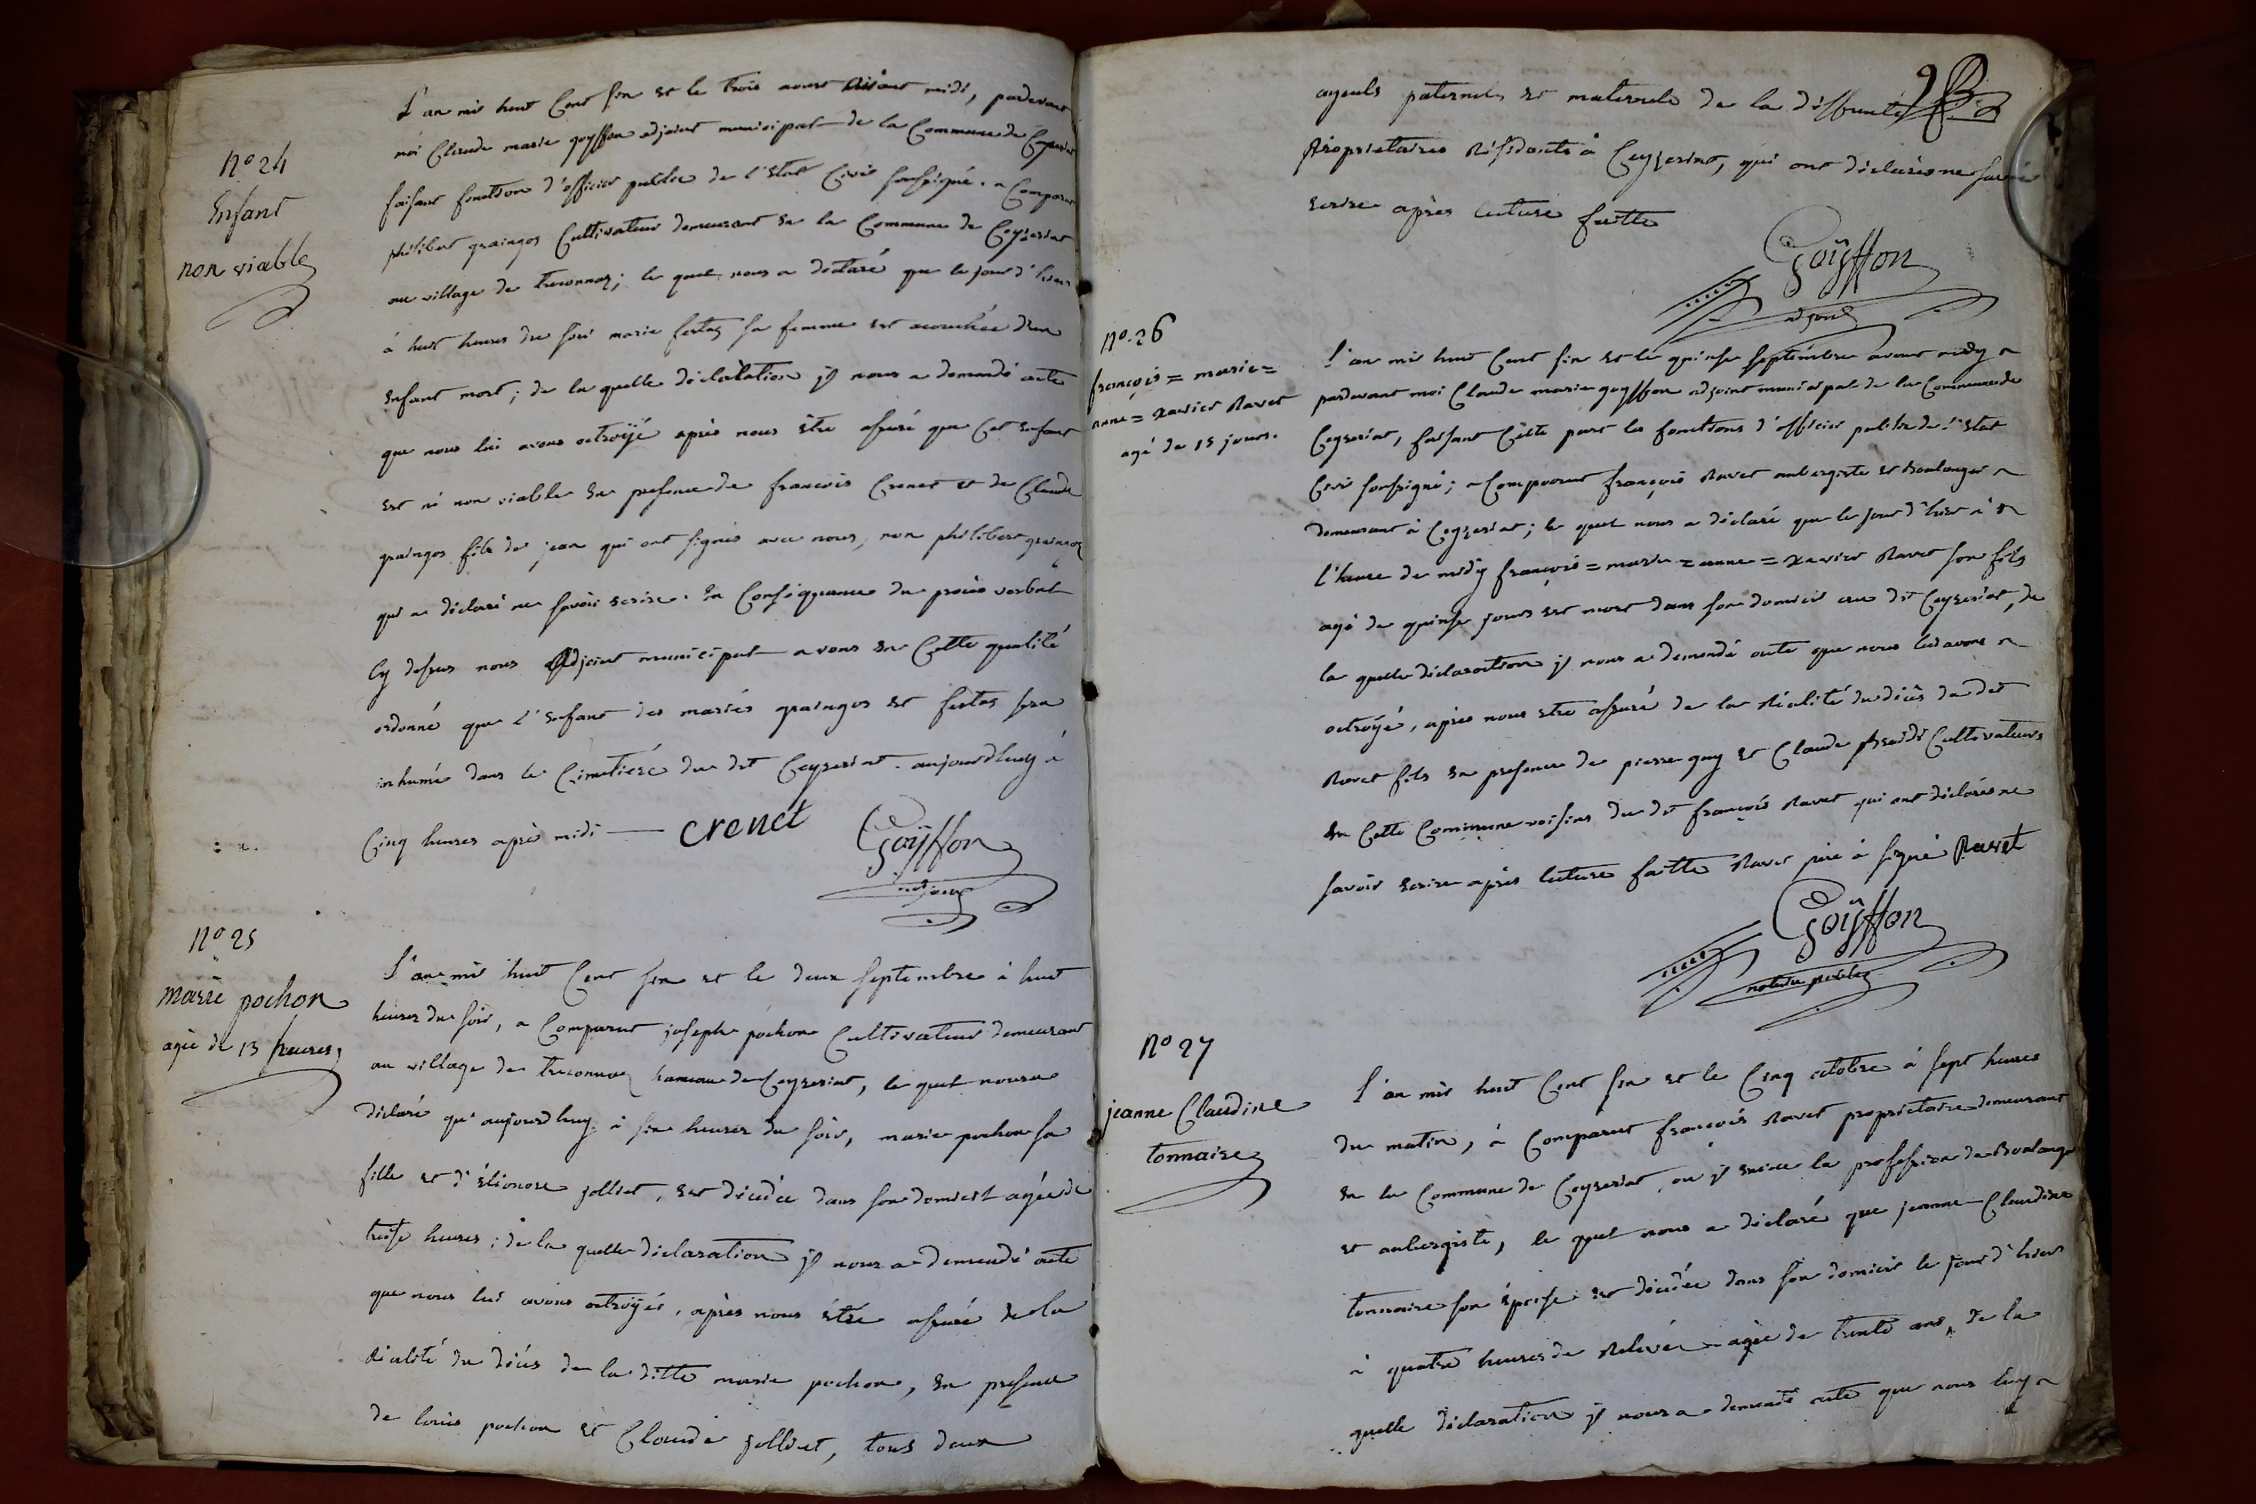 N° 24
Enfant
non viable
L'an mil huit Cent six et le trois aoust avant midi, pardevant
moi Claude marie goyffon adjoint municipal de la Commune de Ceyzeriat
faisant fonction d'officier public de l'Etat Civil soussigné. a Comparu
philibert graingos Cultivateur demeurant en la Commune de Ceyzeriat
au village de treconnaz; le quel nous a déclaré que le jour d'hier
à huit heures du soir marie festaz sa femme est acouchée d'un
Enfant mort; de la quelle déclaration il nous a demandé acte
que nous lui avons octroÿé après nous être assuré que Cet Enfant
est né non viable En presence de francois Crenet et de Claude
graingos fils de jean qui ont signés avec nous, non philibert graingos
qui a déclaré ne savoir Ecrire. En Conséquence du procès verbal
Cy dessus nous Adjoint municipal avons En Cette qualité
ordonné que l'Enfant des mariés graingos et festaz sera
inhumé dans le Cimetière du dit Ceyzeriat. aujourdhuy à
Cinq heures après midi — crenet Goÿffon
adjoint
N° 25
marie pochon
agée de 13 heures
L'an mil huit Cent six et le deux septembre à huit
heures du soir, a Comparut joseph pochon Cultivateur demeurant
au village de treconnaz hameau de Ceyzeriat, le quel nous a
déclaré qu'aujourdhuy à six heures du soir, marie pochon sa
fille et d'Eléonore jolliet, est décédée dans son domicil agée de
treise heures; de la quelle déclaration il nous a demandé acte
que nous lui avons octroÿés, après nous être assuré de la
réalité du décès de la ditte marie pochon, En presence
de louis pochon et Claude jolliet, tous deux
9
ayeuls paternels et maternels de la déffunte
propriétaires résidants à Ceyzeriat, qui ont déclarés ne savoir
Ecrire après lecture faitte
Goÿffon
adjoint
N° 26
françois = marie =
anne = xavier Ravet
agé de 15 jours.
L'an mil huit Cent six et le quinse septembre avant midy
pardevant moi Claude marie goyffon adjoint municipal de la Commune de
Ceyzeriat, faisant Cette part les fonctions d'officier public de l'Etat
Civil soussigné; a Comparut françois Ravet aubergiste et boulanger
demeurant à Ceyzeriat; le quel nous a déclaré que le jour d'hier à
l'heure de midy françois = marie = anne = xavier Ravet son fils
agé de quinse jours est mort dans son domicil au dit Ceyzeriat, de
la quelle déclaration il nous a demandé acte que nous lui avons
octroÿé, après nous être assuré de la réalité du décès du dit
Ravet fils En presence de pierre guy et Claude Cultivateurs
En Cette Commune voisins du dit françois Ravet qui ont déclarés ne
savoir Ecrire après lecture faitte Ravet père à signé Ravet
Goÿffon
notaire public
N° 27
jeanne Claudine
tonnaire
L'an mil huit Cent six et le Cinq octobre à sept heures
du matin, à Comparut françois Ravet propriétaire demeurant
En la Commune de Ceyzeriat, où il Exerce la profession de Boulanger
et aubergiste, le quel nous a déclaré que jeanne Claudine
tonnaire son Epouse est décédée dans son domicil le jour d'hier
à quatre heures de Relevée agée de trente ans, de la
quelle déclaration il nous a demandé acte que nous luy